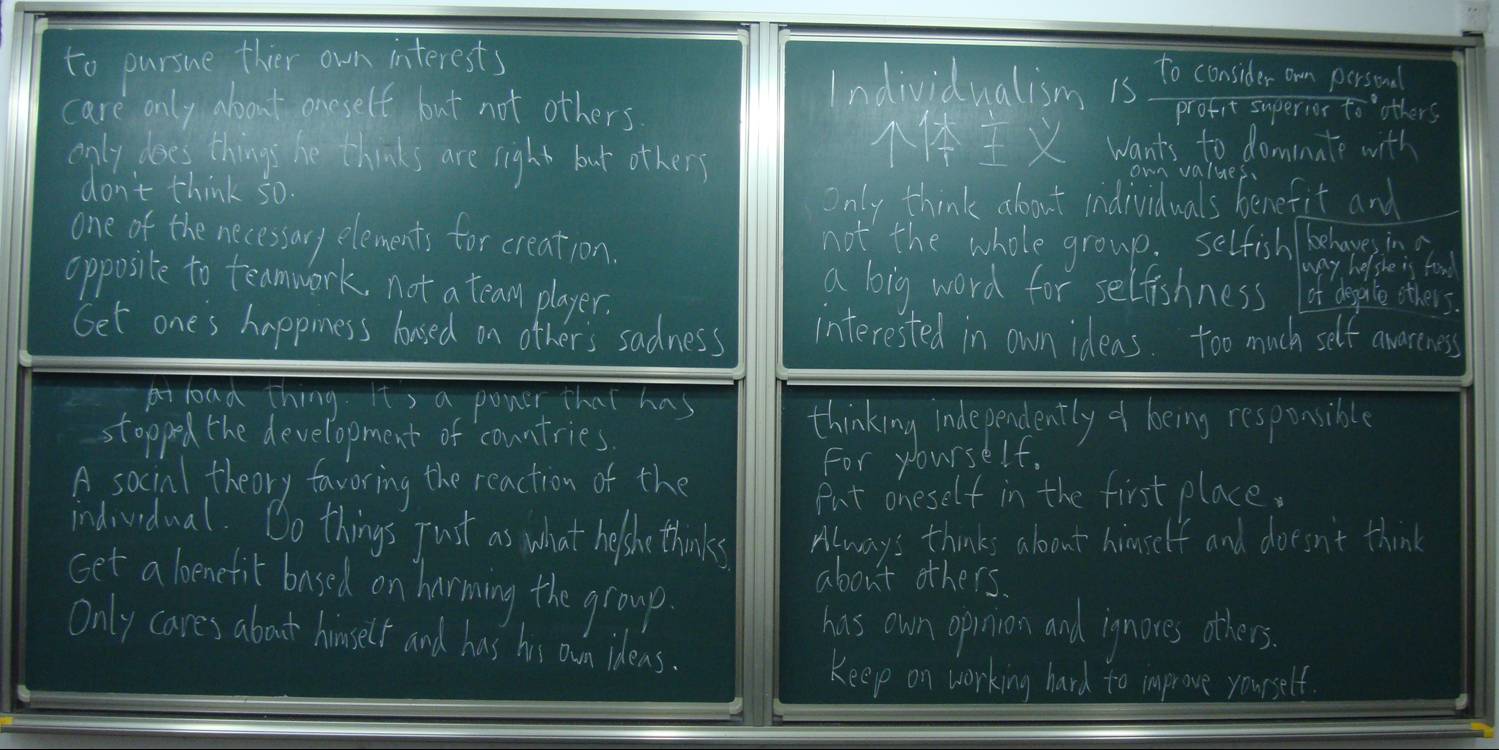 to pursue thier own interests
care only about oneself but not others.
only does things he thinks are right but others
don't think so.
One of the necessary elements for creation.
opposite to teamwork. not a team player.
Get one's happiness based on other's sadness
A bad thing. It's a power that has
stopped the development of countries.
A social theory favoring the reaction of the
individual. Do things just as what he/she thinks.
Get a benefit based on harming the group.
Only cares about himself and has his own ideas.
Individualism is to consider own personal
profit superior to others.
个体主义 wants to dominate with
own values.
Only think about individuals benefit and
not the whole group. selfish
behaves in a
way he/she is fond
of despite others.
a big word for selfishness
interested in own ideas. too much self awareness
thinking independently & being responsible
for yourself.
Put oneself in the first place.
Always thinks about himself and doesn't think
about others.
has own opinion and ignores others.
Keep on working hard to improve yourself.